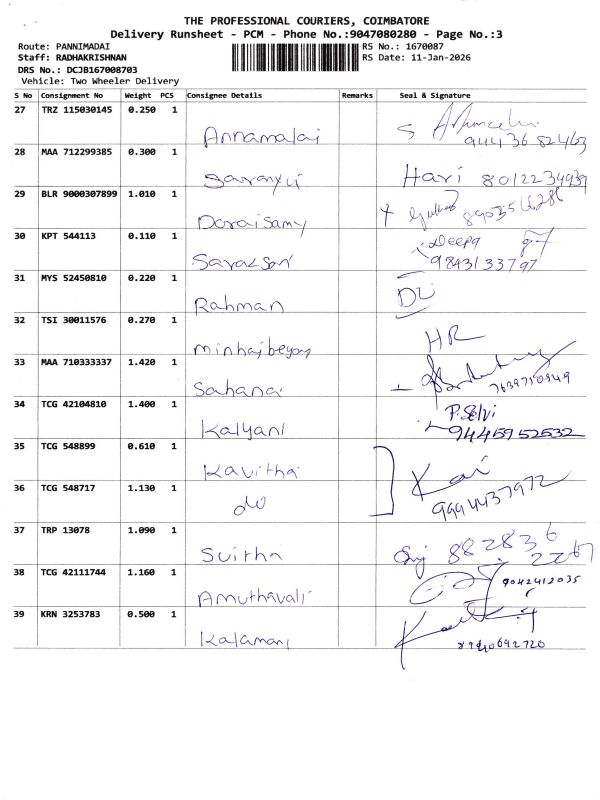 THE PROFESSIONAL COURIERS, COIMBATORE
Delivery Runsheet - PCM - Phone No.:9047080280 - Page No.:3
Route: PANNIMADAI
RS No.: 1670087
Staff: RADHAKRISHNAN
RS Date: 11-Jan-2026
DRS No.: DCJB167008703
Vehicle: Two Wheeler Delivery
S No Consignment No Weight PCS Consignee Details Remarks Seal & Signature
27 TRZ 115030145 0.250 1
Annamalai
28 MAA 712299385 0.300 1
Hari 8012234939
29 BLR 9000307899 1.010 1
Doraisamy
30 KPT 544113 0.110 1
Deepa
9843133797
31 MYS 52450810 0.220 1
Rahman
32 TSI 30011576 0.270 1
HR
33 MAA 710333337 1.420 1
Sahana
34 TCG 42104810 1.400 1
P. Selvi
Kalyani 9445952532
35 TCG 548899 0.610 1
Kavitha
36 TCG 548717 1.130 1
do
9994437972
37 TRP 13078 1.090 1
882836
2267
38 TCG 42111744 1.160 1
9042412035
Amuthavali
39 KRN 3253783 0.500 1
Kalamani